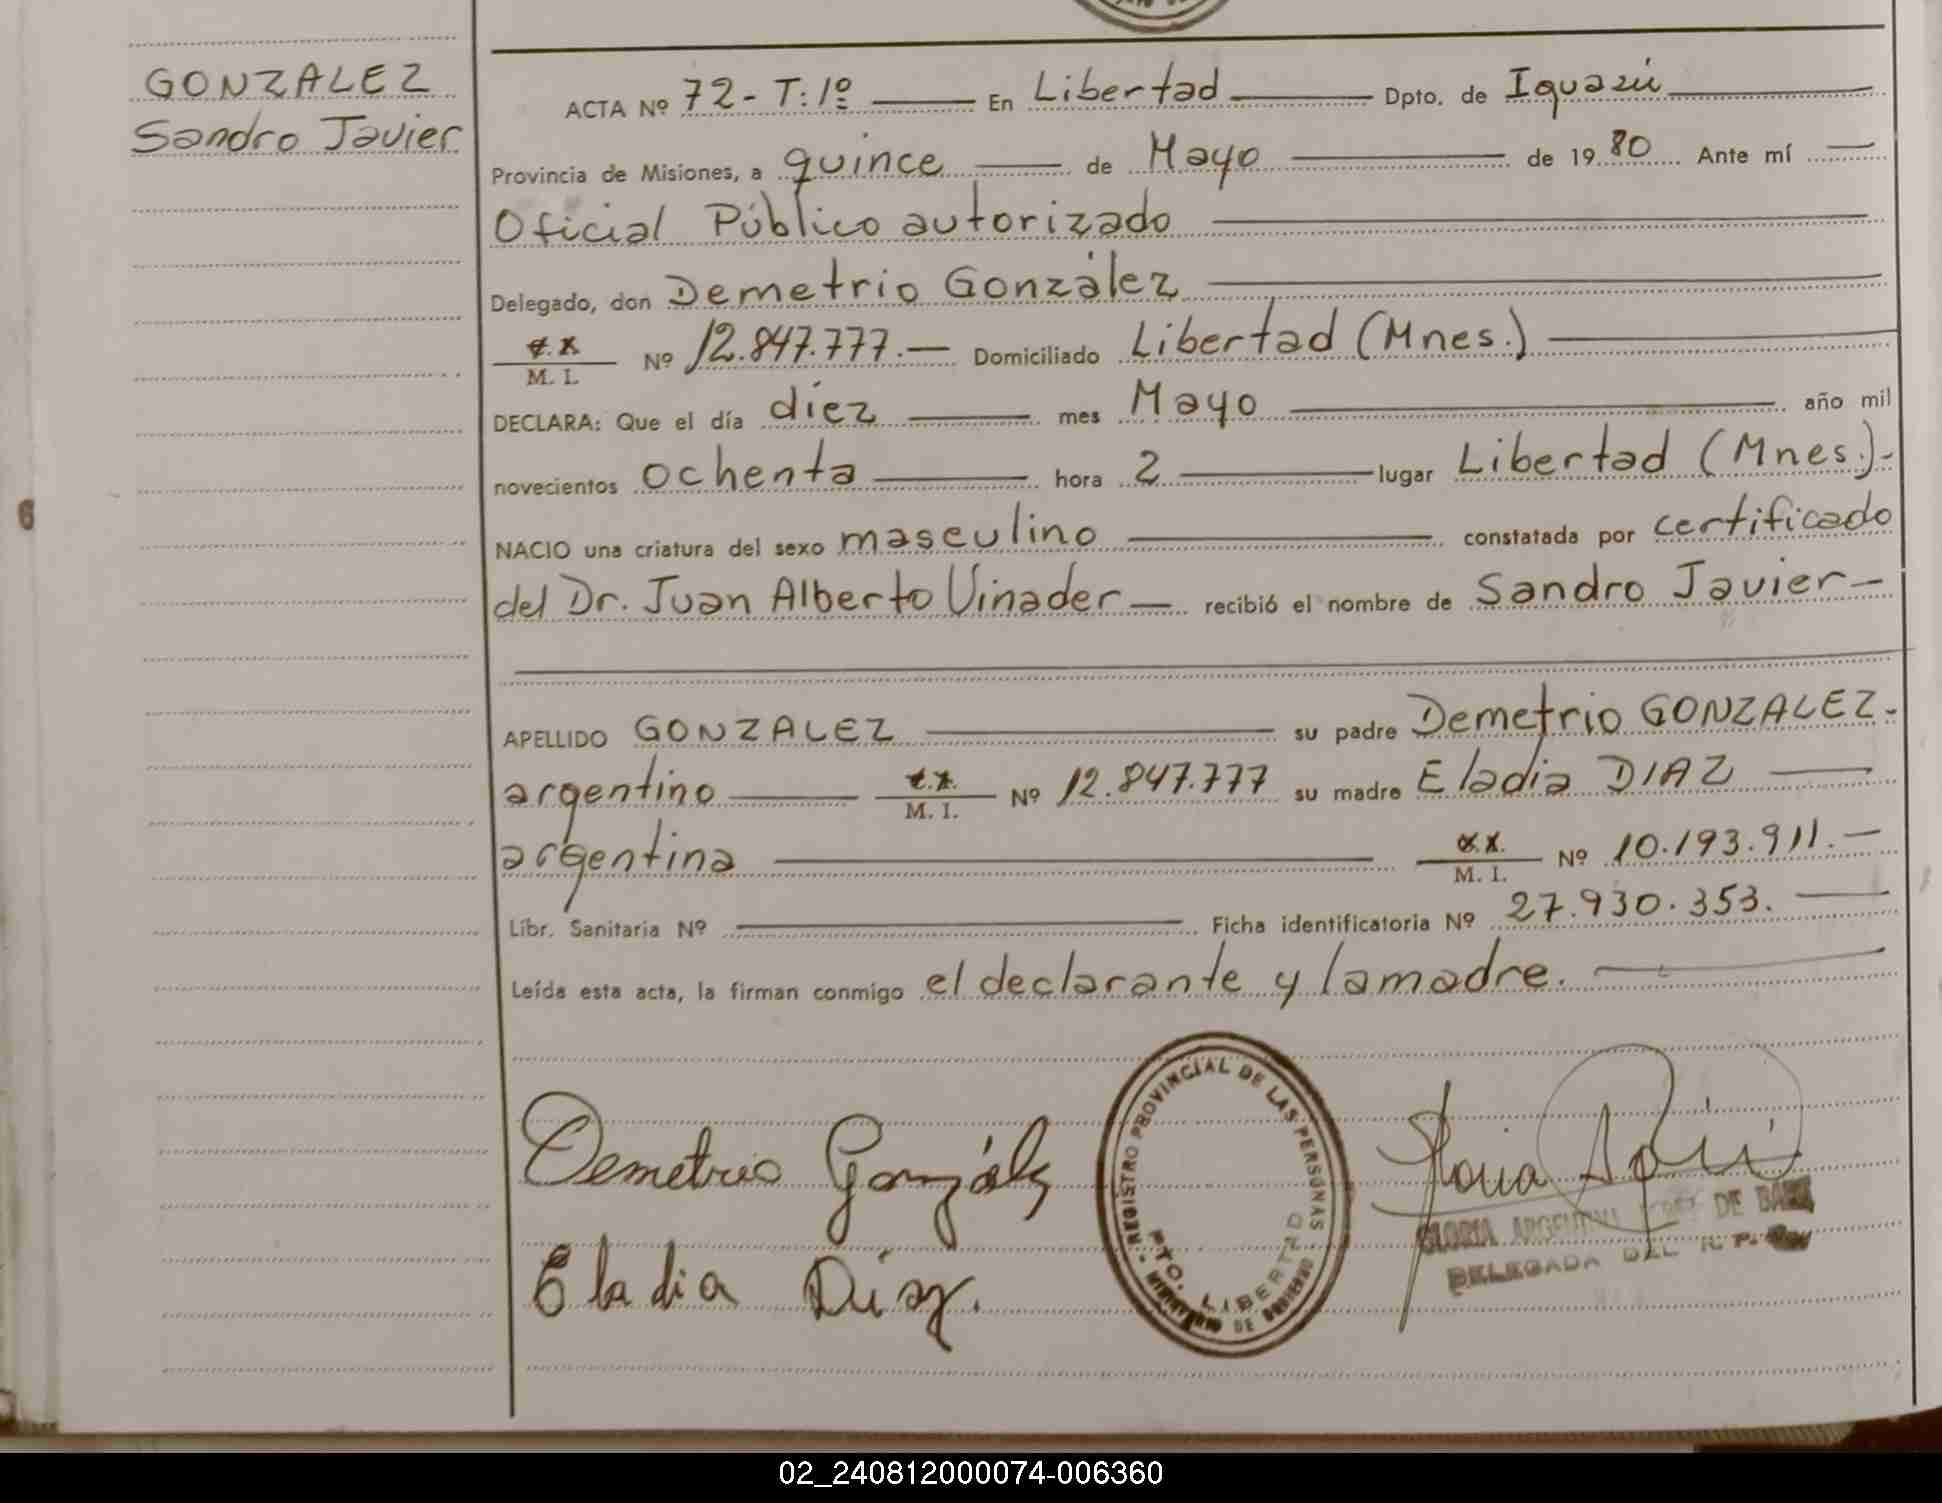 GONZALEZ
Sandro Javier
6
ACTA Nº 72 - T: 1º En Libertad Dpto. de Iguazú
Provincia de Misiones, a quince de Mayo de 1980 Ante mí
Oficial Público autorizado
Delegado, don Demetrio González
M. I. Nº 12.847.777.- Domiciliado Libertad (Mnes.)
DECLARA: Que el día diez mes Mayo año mil
novecientos ochenta hora 2 lugar Libertad (Mnes.)-
NACIO una criatura del sexo masculino constatada por certificado
del Dr. Juan Alberto Vinader recibió el nombre de Sandro Javier
APELLIDO GONZALEZ su padre Demetrio GONZALEZ-
argentino M. I. Nº 12.847.777 su madre Eladia DIAZ
argentina M. I. Nº 10.193.911.-
Libr. Sanitaria Nº Ficha identificatoria Nº 27.930.353.
Leída esta acta, la firman conmigo el declarante y la madre.
Demetrio González
Eladia Díaz.
REGISTRO PROVINCIAL DE LAS PERSONAS
PTO. LIBERTAD
MINISTERIO DE GOBIERNO
GLORIA ARGENTINA DE
DELEGADA DEL R. P.
02_240812000074-006360